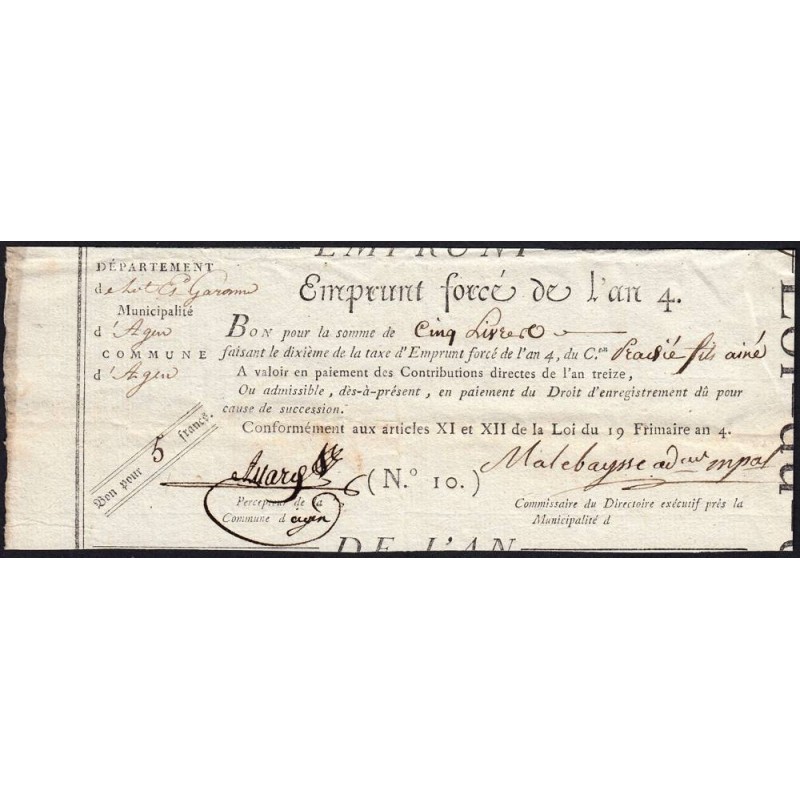 EMPRUNT
DÉPARTEMENT
de Lot et Garonne
Municipalité
d'Agen
COMMUNE
d'Agen
Bon pour 5 francs.
Emprunt forcé de l'an 4.
BON pour la somme de Cinq Livres
faisant le dixième de la taxe d'Emprunt forcé de l'an 4, du C.en fils ainé
A valoir en paiement des Contributions directes de l'an treize,
Ou admissible, dès-à-présent, en paiement du Droit d'enregistrement dû pour
cause de succession.
Conformément aux articles XI et XII de la Loi du 19 Frimaire an 4.
(N.° 10.)
Malebaysse
Percepteur de la
Commune d agen
Commissaire du Directoire exécutif près la
Municipalité d
DE L'AN